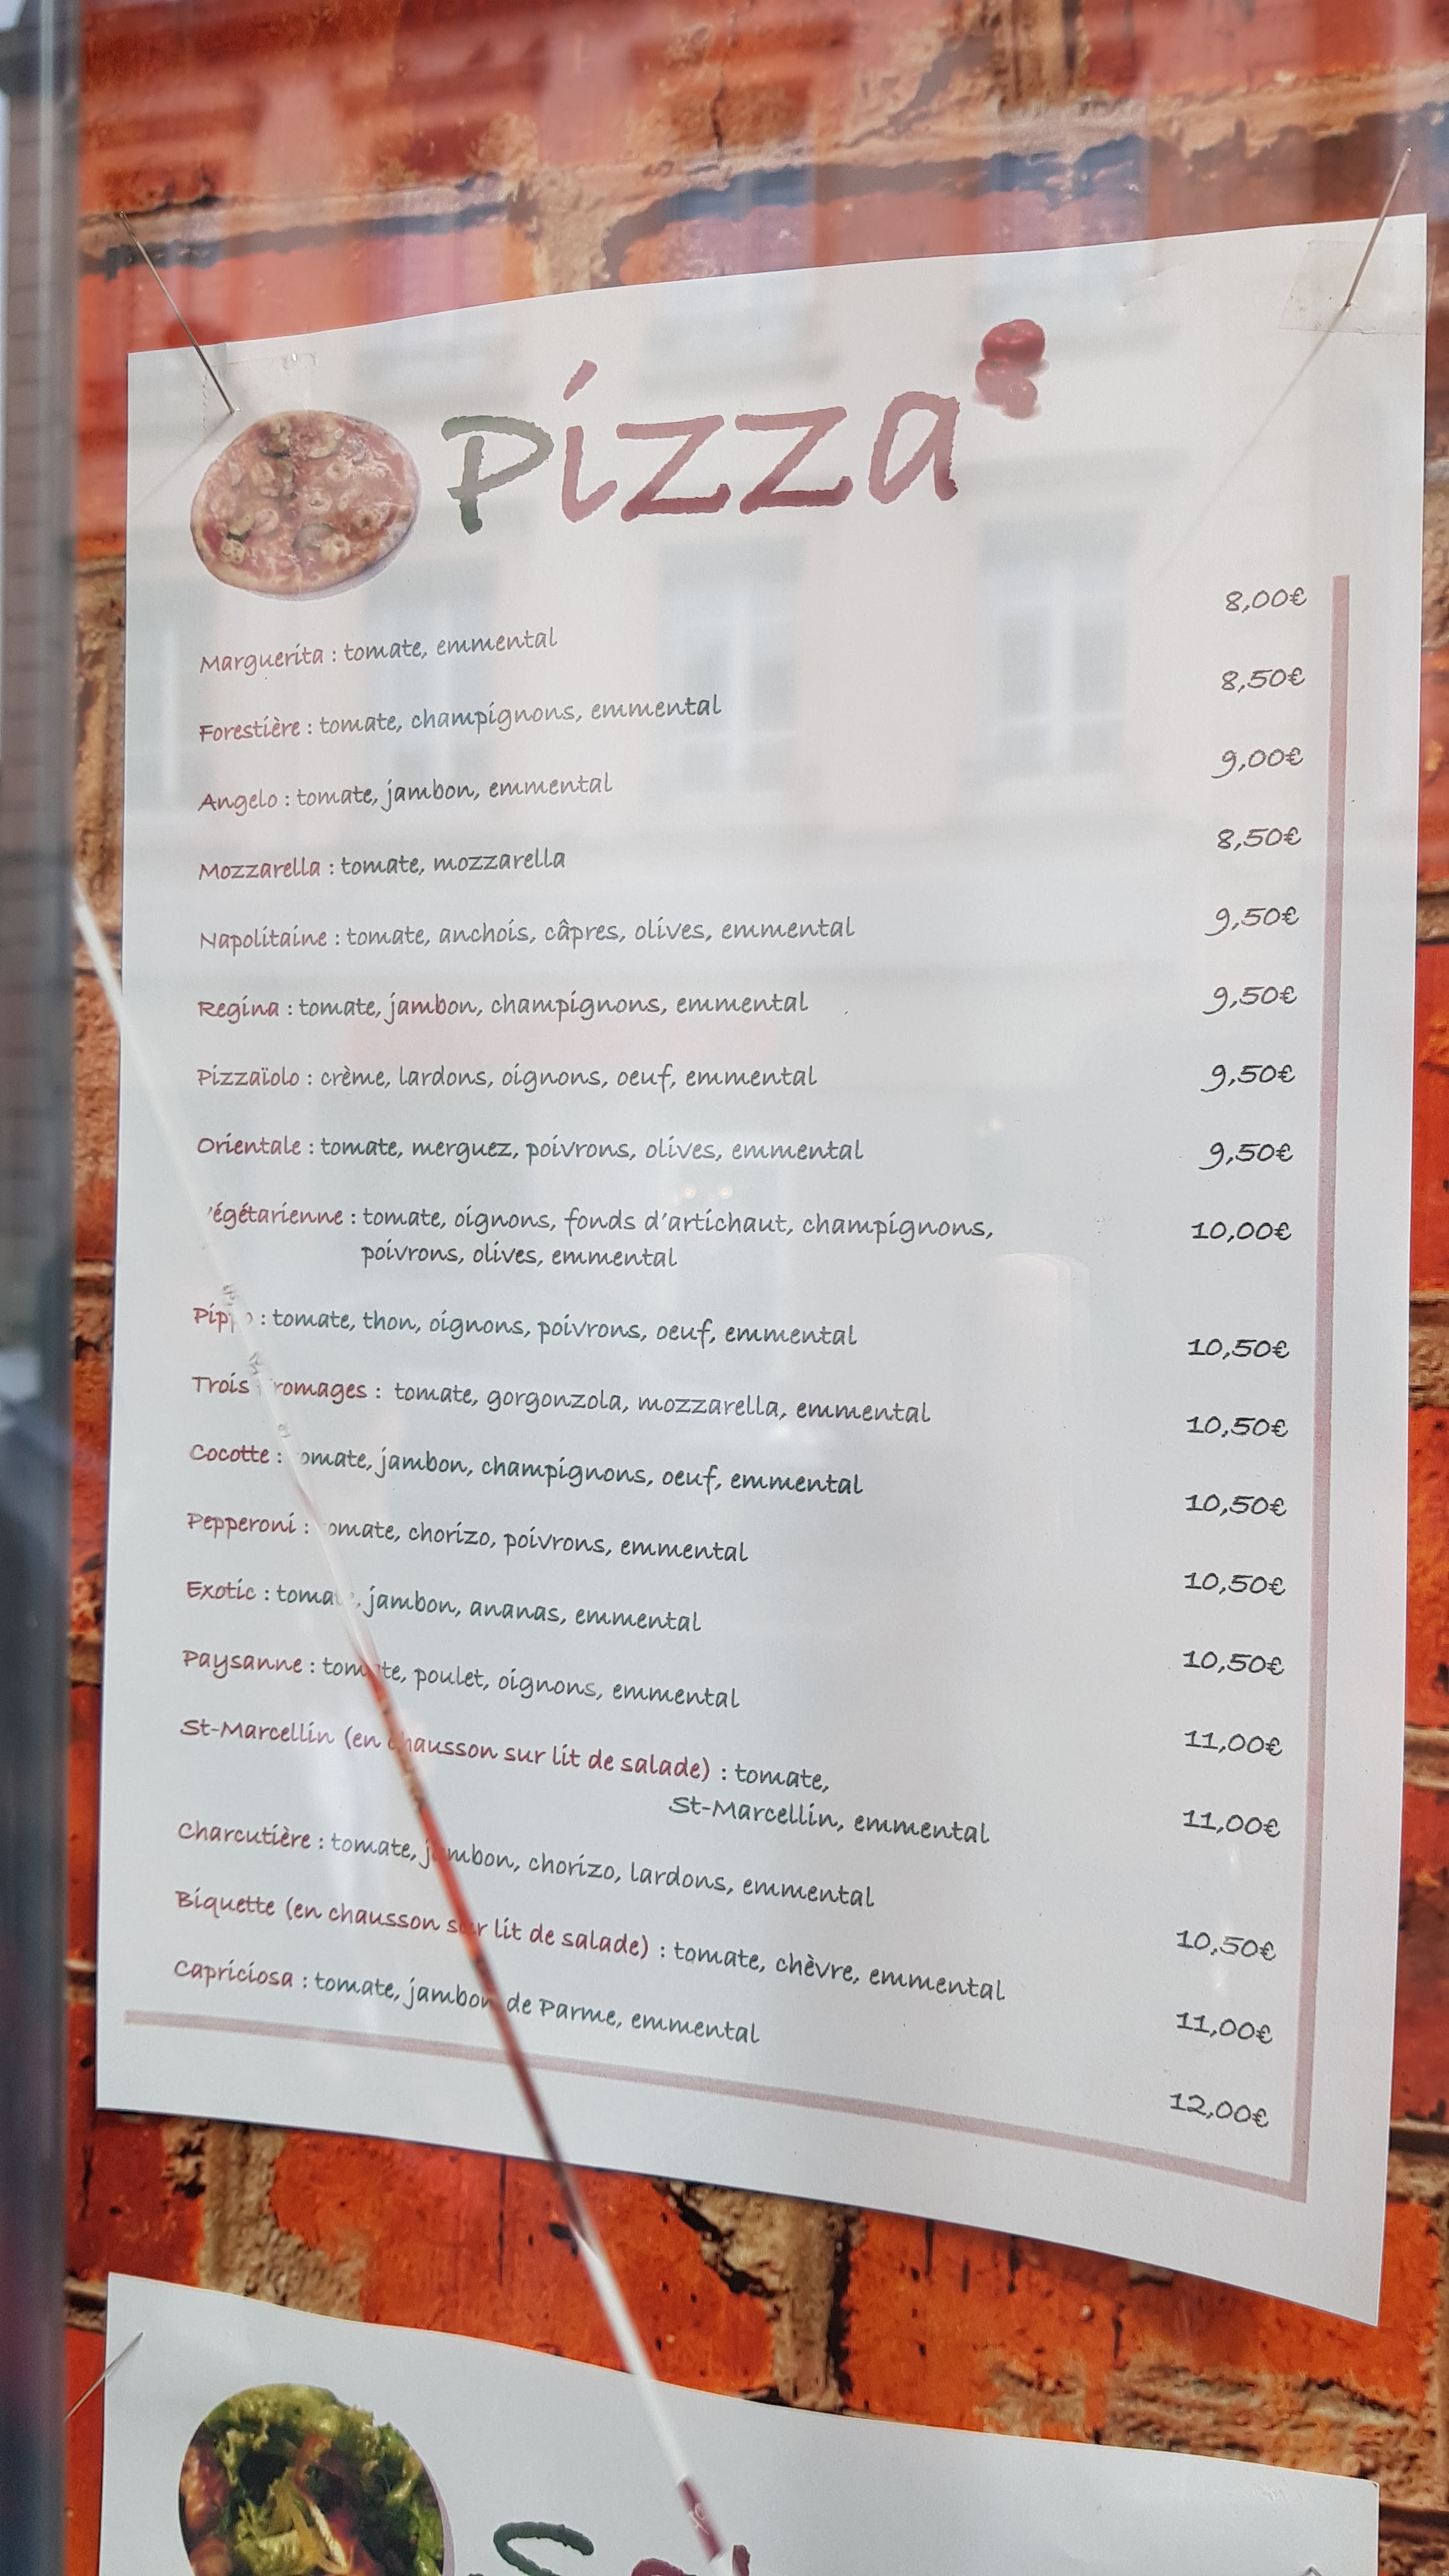 Pizza
Marguerita : tomate, emmental 8,00€
Forestière : tomate, champignons, emmental 8,50€
Angelo : tomate, jambon, emmental 9,00€
Mozzarella : tomate, mozzarella 8,50€
Napolitaine : tomate, anchois, câpres, olives, emmental 9,50€
Regina : tomate, jambon, champignons, emmental 9,50€
Pizzaïolo : crème, lardons, oignons, oeuf, emmental 9,50€
Orientale : tomate, merguez, poivrons, olives, emmental 9,50€
Végétarienne : tomate, oignons, fonds d'artichaut, champignons, 10,00€
poivrons, olives, emmental
Pippo : tomate, thon, oignons, poivrons, oeuf, emmental 10,50€
Trois fromages : tomate, gorgonzola, mozzarella, emmental 10,50€
Cocotte : tomate, jambon, champignons, oeuf, emmental 10,50€
Pepperoni : tomate, chorizo, poivrons, emmental 10,50€
Exotic : tomate, jambon, ananas, emmental 10,50€
Paysanne : tomate, poulet, oignons, emmental 11,00€
St-Marcellin (en chausson sur lit de salade) : tomate, 11,00€
St-Marcellin, emmental
Charcutière : tomate, jambon, chorizo, lardons, emmental 10,50€
Biquette (en chausson sur lit de salade) : tomate, chèvre, emmental 11,00€
Capriciosa : tomate, jambon de Parme, emmental 12,00€